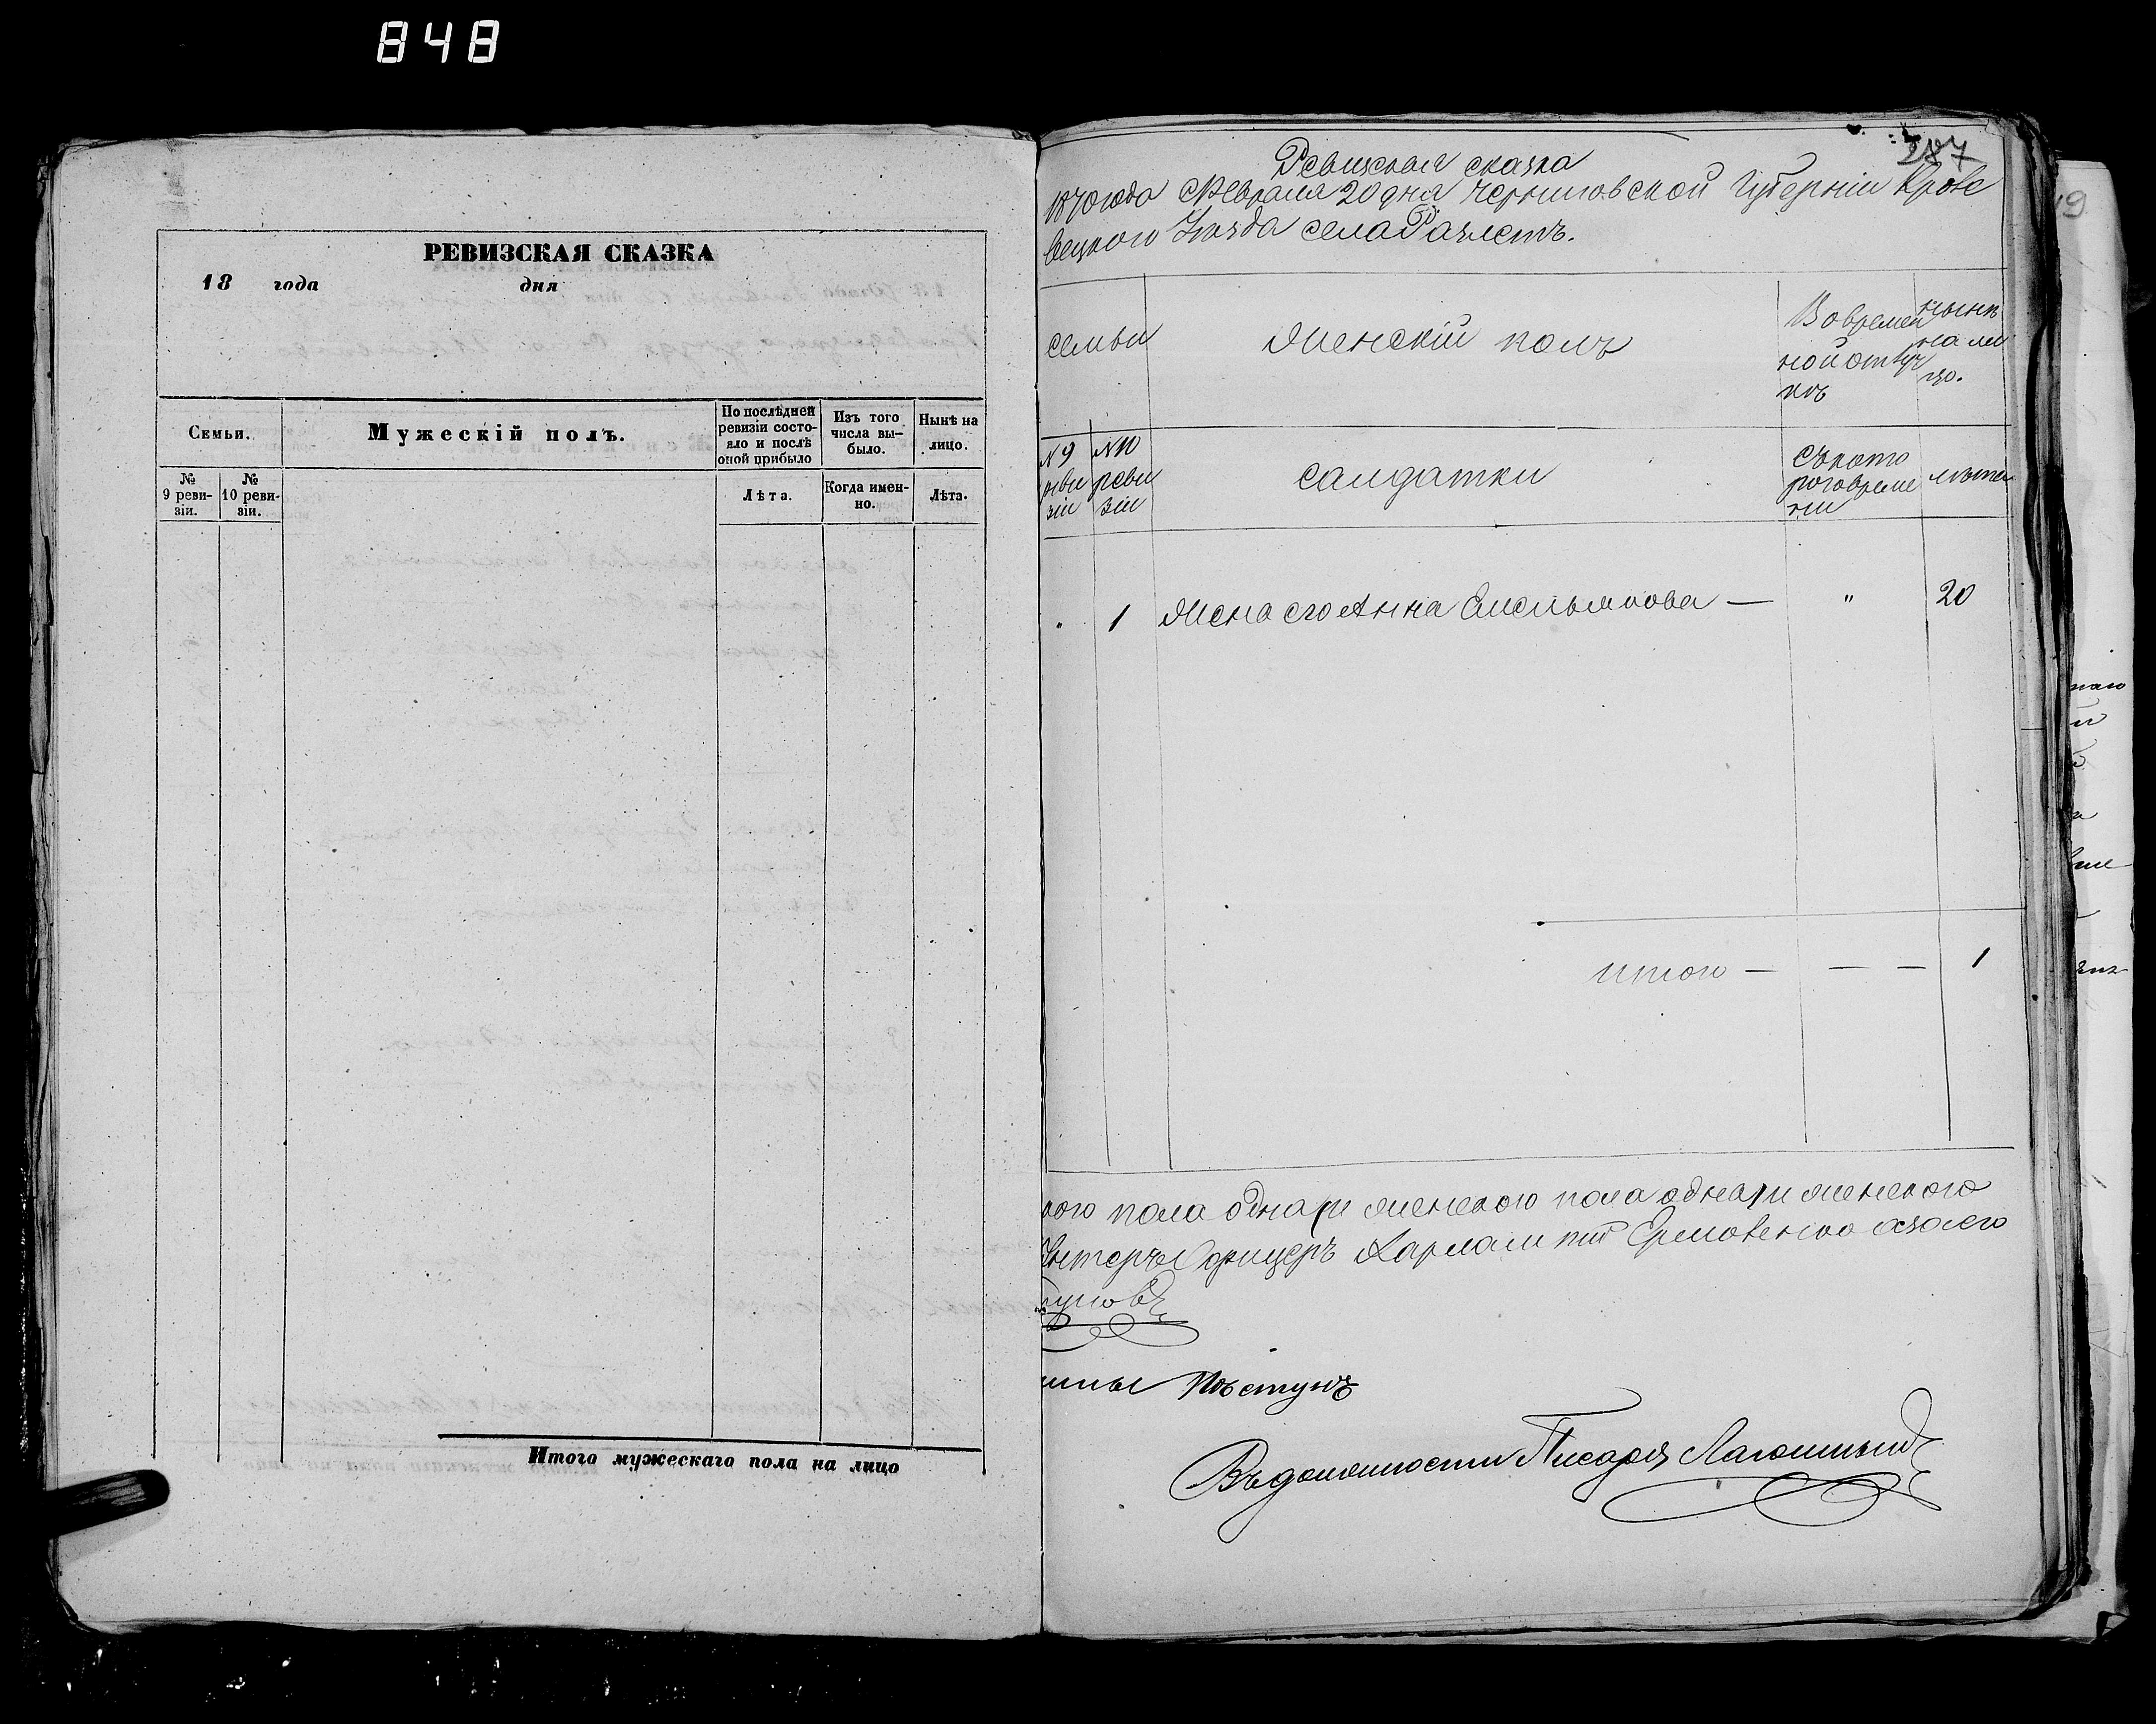 848
РЕВИЗСКАЯ СКАЗКА
18 года дня
Семьи.
Мужескій полъ.
По послѣдней ревизіи состо-
яло и послѣ оной прибыло
Изъ того числа вы-
было.
Нынѣ на лицо.
№ 9 реви-
зіи.
№ 10 реви-
зіи.
Лѣта.
Когда имен-
но.
Лѣта.
Итого мужескаго пола на лицо
287
Ревизская сказка
1870 года Февраля 20 дня Черниговской Губерніи Кроле
вецкаго Уѣзда села Разлетъ.
семьи
Женскій полъ
Во времен
ной отлуч
кѣ
нынѣ
на ли
цо.
№ 9
реви
зіи
№ 10
реви
зіи
Салдатки
Съ кото
раго време
ни
лѣта
" 1 Жена его Анна Емельянова — " 20
итого — — — 1
кого пола одна и женского пола одна женского
Унтеръ Офицеръ
Пѣстунъ
Въ должности Писаря